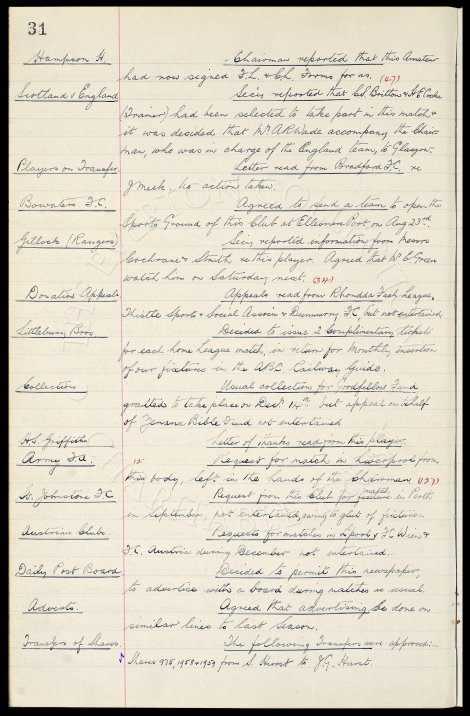 31
Hampson H. Chairman reported that this Amateur
had now signed F.L. & C.L. Forms for us. (47)
Scotland v England Secy reported that C.S. Britton & H.E. Cooke
(Trainer) had been selected to take part in this match &
it was decided that Mr A.R. Wade accompany the Chair-
man, who was in charge of the England team, to Glasgow.
Players on Transfer. Letter read from Bradford F.C. re
J Meek. No action taken.
Bowaters F.C. Agreed to send a team to open the
Sports Ground of this Club at Ellesmere Port, on Aug 23rd.
Gillock (Rangers) Secy reported information from Messrs
Cochrane & Smith re this player. Agreed that Mr C. Green
watch him on Saturday next. (34)
Donation Appeals Appeals read from Rhondda Fach League,
Thistle Sports & Social Assocn & F.C, but not entertained.
Littlebury Bros Decided to issue 2 Complimentary tickets
for each home League match, in return for Monthly insertion
of our fixtures in the ABC Railway Guide.
Collections Usual collection for Goodfellow Fund
granted to take place on Decr 14th. but appeal on behalf
of Zenana Bible Fund not entertained
H.S. Griffiths Letter of thanks read from this player.
Army F.A. Request for match in Liverpool from
this body, left in the hands of the Chairman (137)
St. Johnstone F.C Request from this Club for match in Perth
in September not entertained, owing to glut of fixtures.
Austrian Clubs. Requests for matches in by F.C Wien &
F.C. Austria during December not entertained.
Daily Post Board Decided to permit this newspaper,
to advertise with a board during matches as usual.
Adverts. Agreed that advertising be done on
similar lines to last Season.
Transfers of Shares. The following Transfers were approved:-
Shares 975, 1958 & 1959 from S. Hurst to J.G. Hurst.